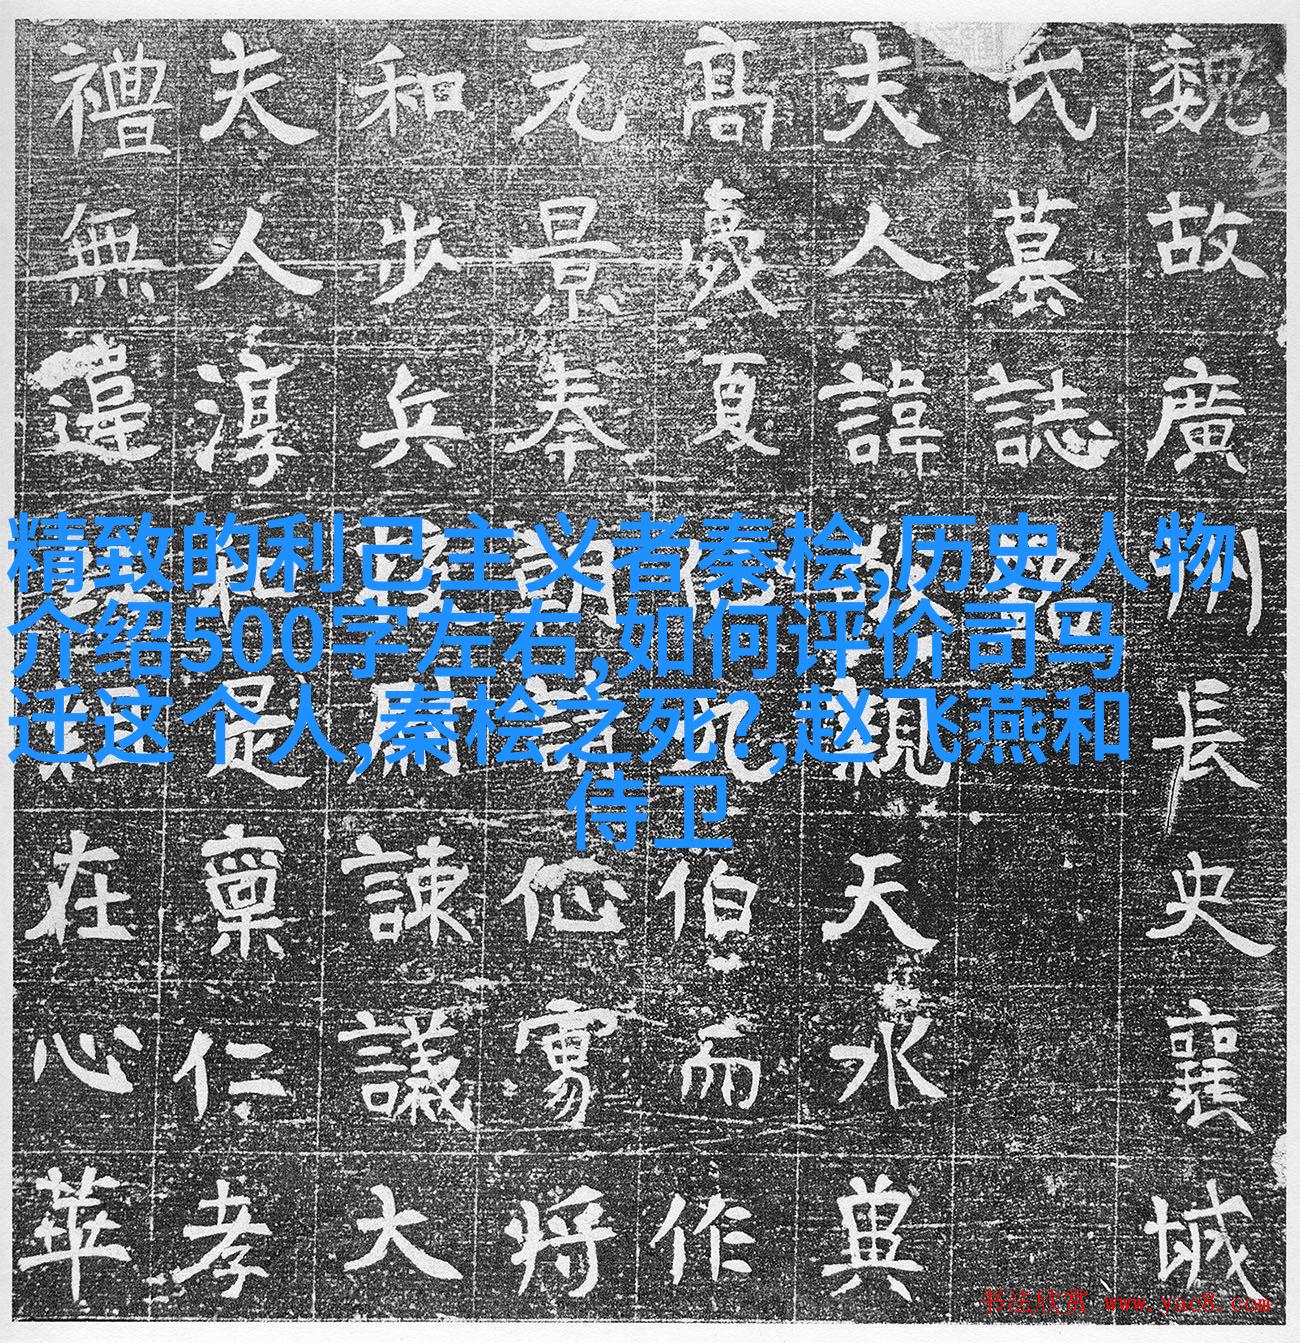 精致的利己主义者秦桧,历史人物
介绍500字左右,如何评价司马
迁这个人,秦桧之死?,赵飞燕和
侍卫
魏故廣州長史襄城
氏墓誌
夫人諱親天水
高夏伯而作
元景奉朝請将
和步兵諫議大
夫人淳和是稟仁孝
禮無違在心華
书法欣赏 www.yac8.com